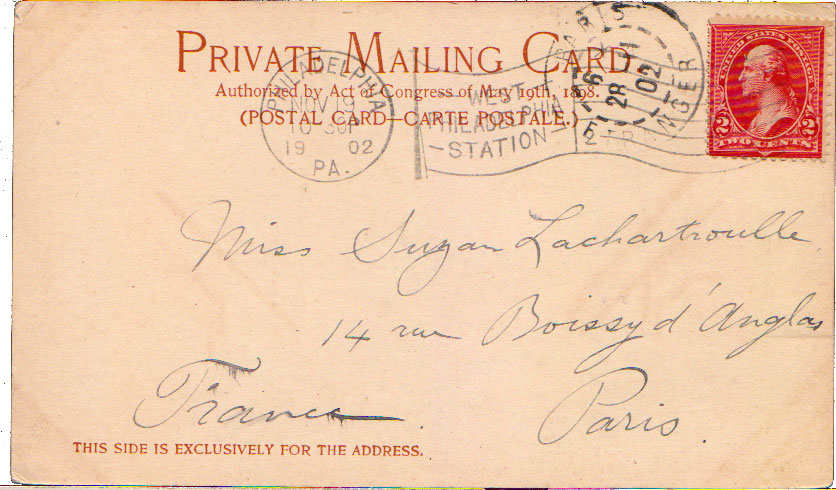 PRIVATE MAILING CARD
Authorized by Act of Congress of May 19th, 1898.
(POSTAL CARD—CARTE POSTALE.)
PHILADELPHIA
NOV 19
19 02
PA.
WEST
PHILADELPHIA
STATION
PARIS
28 11
02
ETRANGER
UNITED STATES POSTAGE
2 2
TWO CENTS
Miss Suzan Lachartroulle
14 rue Boissy d'Anglas
Paris.
France
THIS SIDE IS EXCLUSIVELY FOR THE ADDRESS.